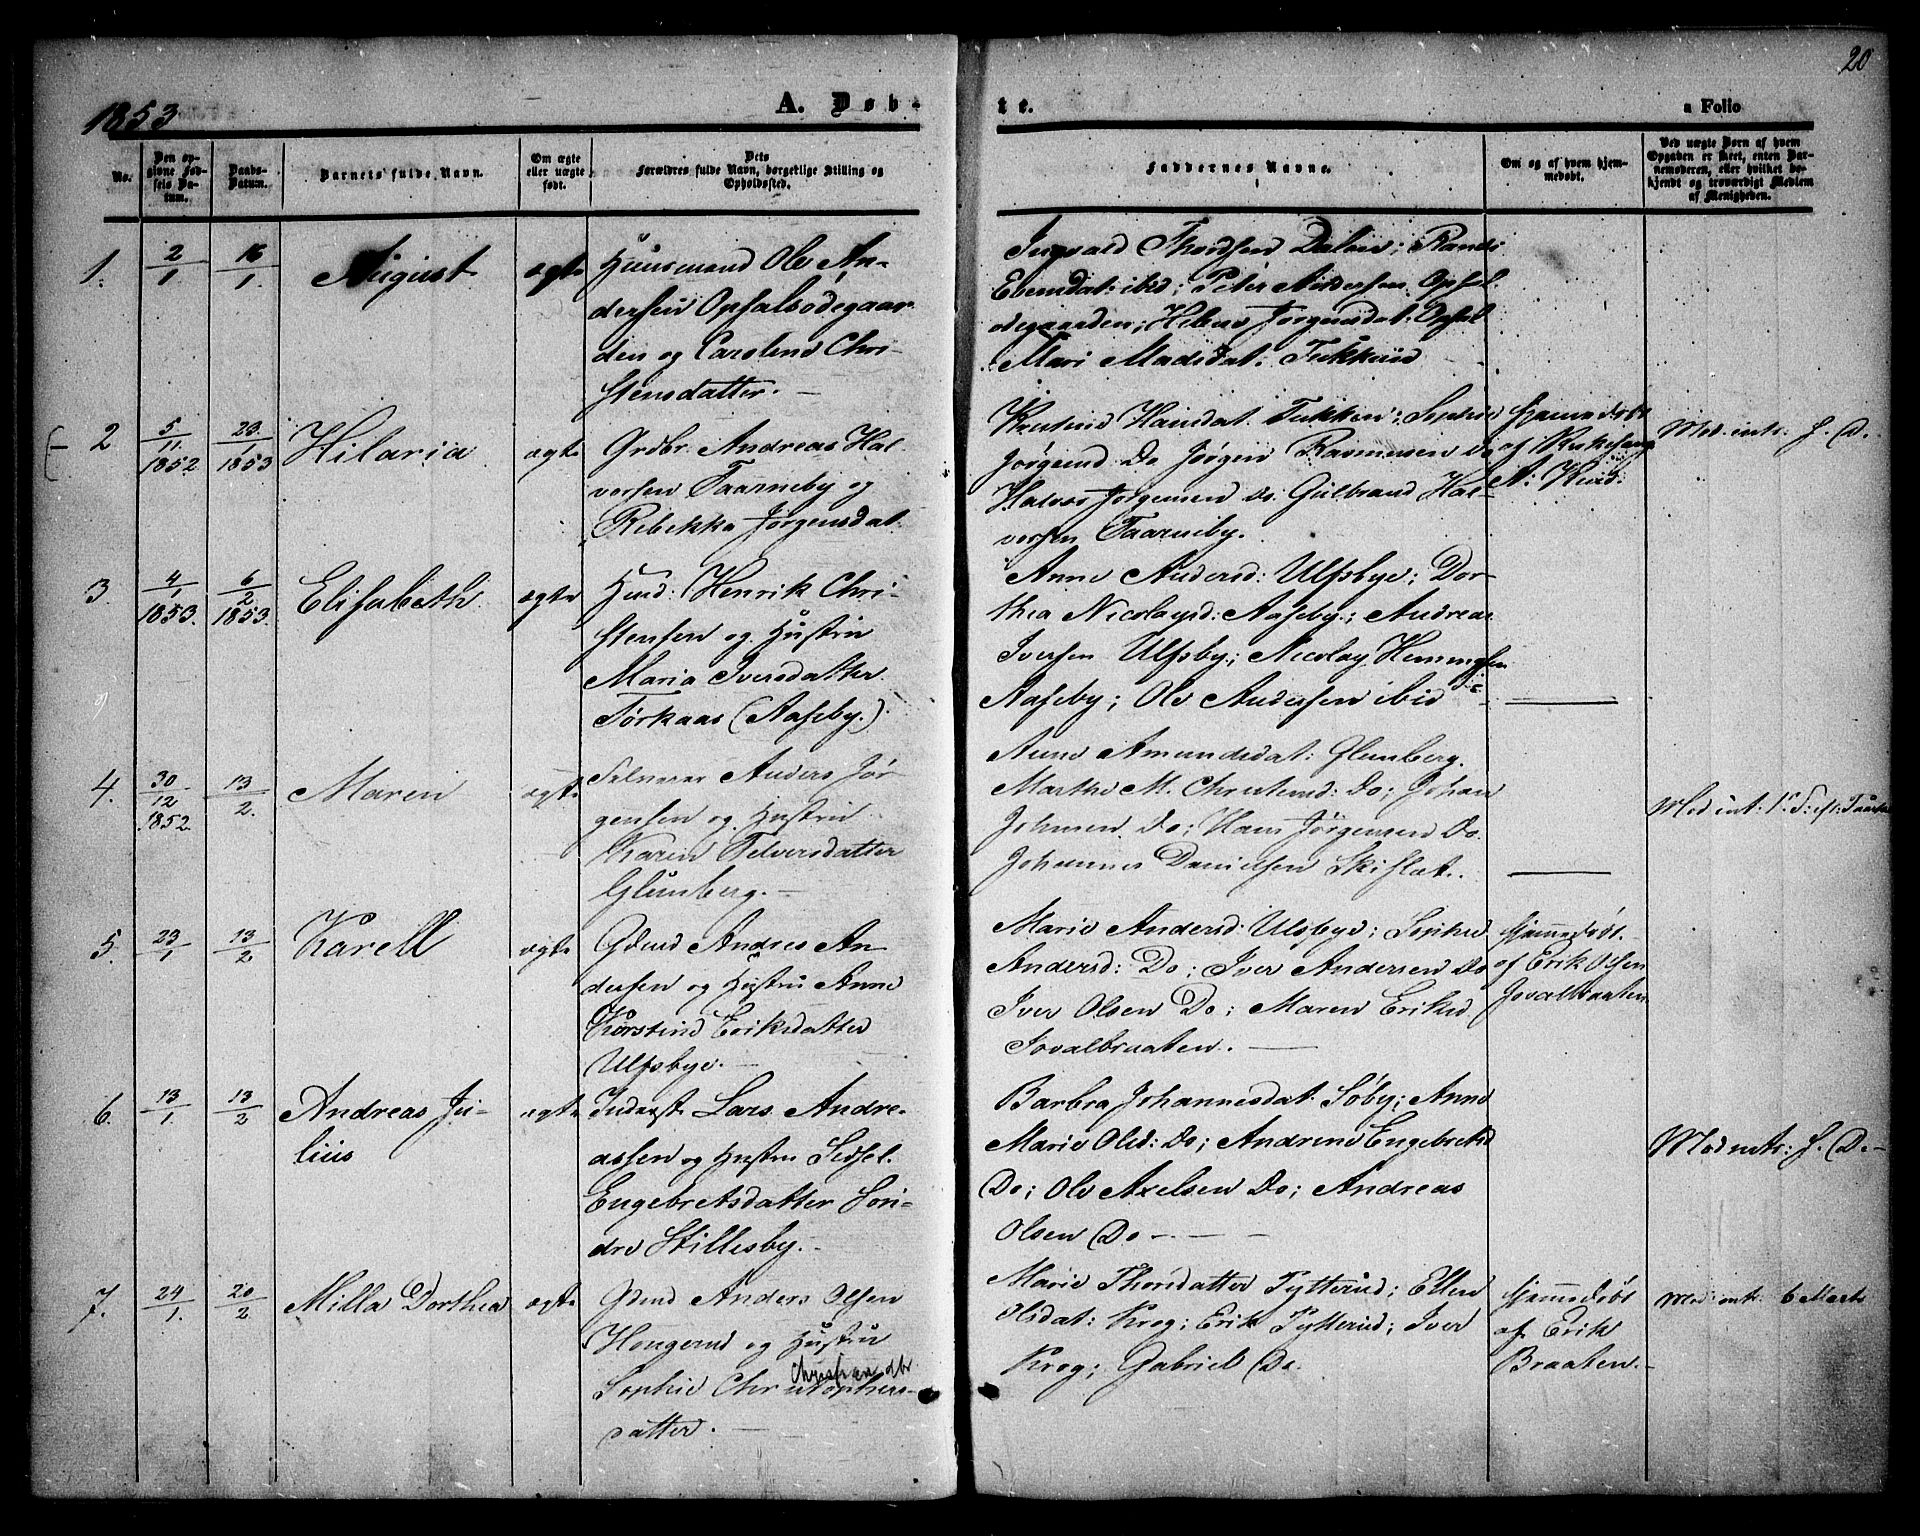 20
1853
A. Døb-
te.
a Folio
No.
Den opgivne Fødsels Datum.
Daabs-Datum.
Barnets fulde Navn.
Om ægte eller uægte født.
Dets Forældres fulde Navn, borgerlige Stilling og Opholdssted.
Faddernes Navne.
Om og af hvem hjemmedøbt.
Ved uægte Børn af hvem Opgaven er skeet, enten Barnemoderen, eller hvilket bekjendt og troværdigt Medlem af Menigheden.
1. 2/1. 16/1. August ægte
Huusmand Ole An-
dersen Opsalsødegaar-
den og Caroline Chri-
stensdatter. —
Ingvald Thordsen Dalen; Randi
Evensdat: ibid; Peter Andersen Opsal
ødegaarden; Helene Jørgensdat: Opsal
Mari Madsdat: Tukkerud
2 5/11. 1852 23/1 1853 Hilaria ægte
Grdbr: Andreas Hal-
vorsen Taarneby og
Rebekka Jørgensdat.
Hansdat. Tukken; Sophie
Jørgensd Do Jørgen Rasmussen Do
Halvor Jørgensen Do. Gulbrand Hal-
vorsen Taarneby.
Hjemmedøbt
af
Mod. intr: f. D.
3. 4/1 1853. 6/2 1853. Elisabeth ægte
Husd: Henrik Chri-
stensen og Hustru
Maria Iversdatter
Törkaas (Aaseby.)
Anne Andersd: Ulfsbye; Dor-
thea Nicolaysd: Aaseby; Andreas
Iversen Ulfsby; Nicolay Hemmingsen
Aaseby; Ole Andersen ibid
4. 30/12 1852. 13/2. Maren ægte
Selveier Anders Jør-
gensen og Hustru
Karen Selversdatter
Glumberg. —
Anne Amundsdat: Glumberg.
Marthe M. Christensd: Do; Johan
Johnsen Do; Hans Jørgensen Do.
Johannes Danielsen Skiflæt.
5. 23/1 13/2 Karell ægte
Gdmd Andres An-
dersen og Hustru Anne
Kerstine Eriksdatter
Ulfsbye. —
Marie Andersd: Ulfsbye; Sophie
Andersd: Do; Iver Andersen Do
Iver Olsen Do; Maren Eriksd
Jovalbraaten. —
Hjemmedøbt.
af Erik Olsen
Jovalbraaten
6. 13/1. 13/2 Andreas Ju-
lius ægte
Inderst Lars Andre-
assen og Hustru Sidsel
Engebretsdatter Søn-
dre Stillesby. —
Barbra Johannesdat: Søby; Anne
Marie Olsd: Do; Andrine Engebretsd
Do; Ole Axelsen Do; Andreas
Olsen Do —
Mod. intr: f. D. —
7. 24/1. 20/2. Milla Dorthea ægte
Gdmd Anders Olsen
Hougerud og Hustru
Christiansdtr
Sophie Christophers-
datter. —
Marie Thorsdatter Tytterud; Ellen
Olsdat: Krog; Erik Tytterud; Iver
Krog; Gabriel Do.
Hjemmedøbt
af Erik
Braaten. —
Mod: intr: 6 Marts